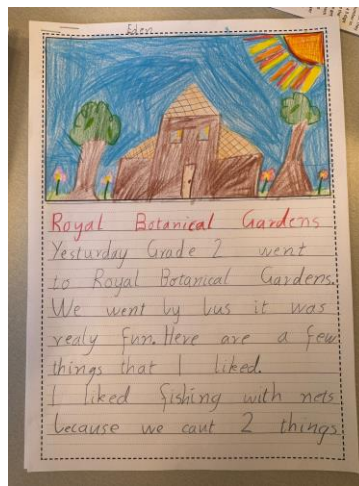 Eden
Royal Botanical Gardens
Yesturday Grade 2 went
to Royal Botanical Gardens.
We went by bus it was
realy fun. Here are a few
things that I liked.
I liked fishing with nets
because we caut 2 things